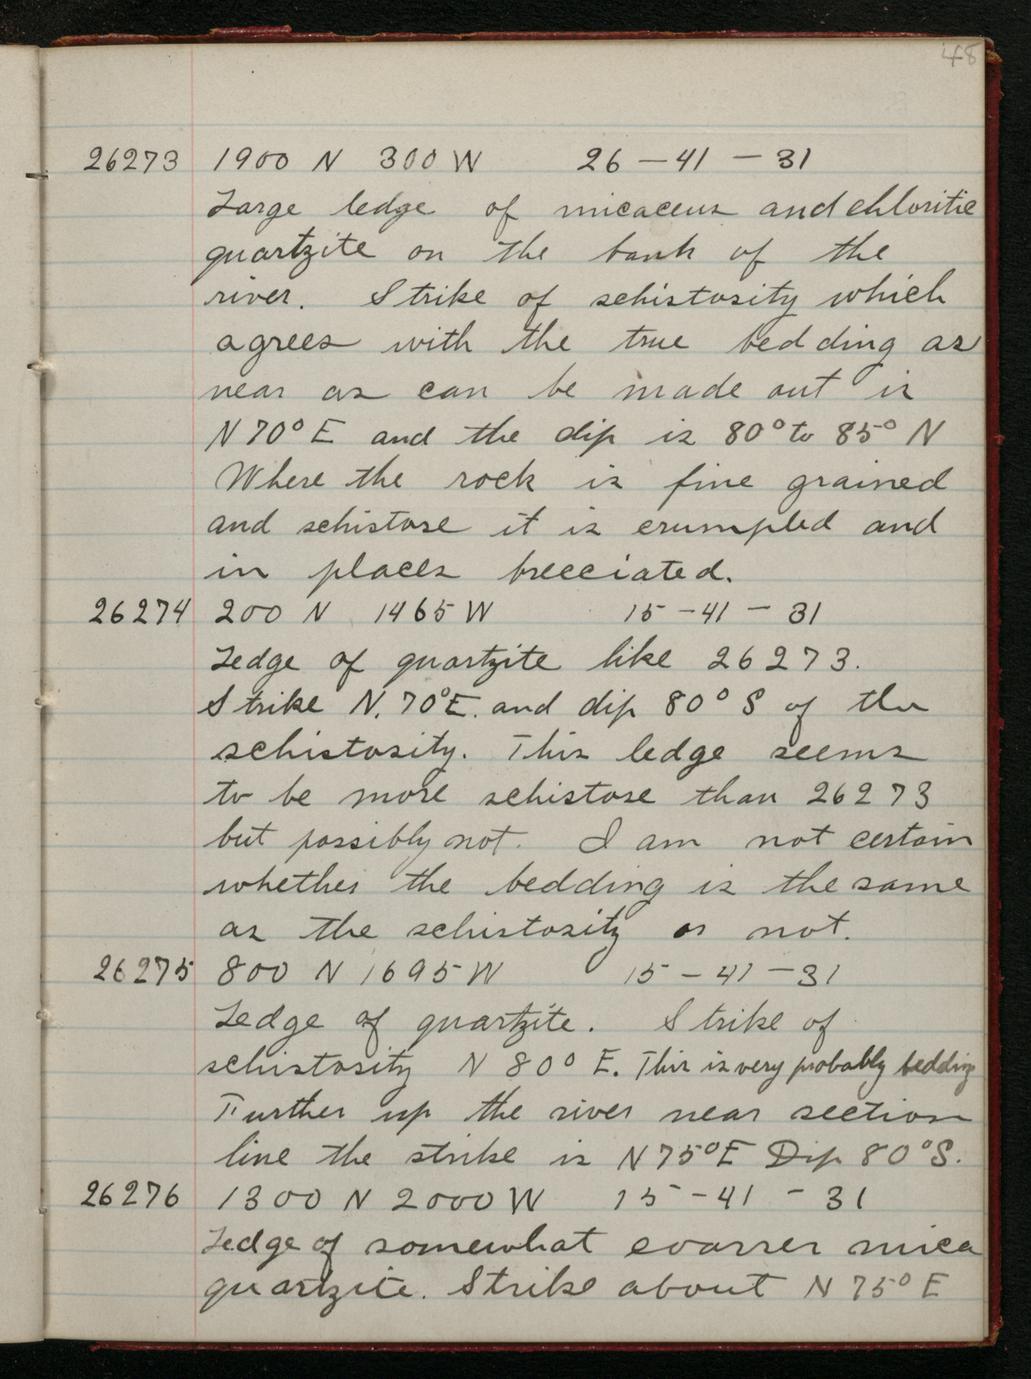 48
26273 1900 N 300 W 26 - 41 - 31
Large ledge of micaceus and chloritic
quartzite on the bank of the
river. Strike of schistosity which
agrees with the true bedding as
near as can be made out is
N 70° E and the dip is 80° to 85° N
Where the rock is fine grained
and schistose it is crumpled and
in places brecciated.
26274 200 N 1465 W 15 - 41 - 31
Ledge of quartzite like 26273.
Strike N. 70° E. and dip 80° S of the
schistosity. This ledge seems
to be more schistose than 26273
but possibly not. I am not certain
whether the bedding is the same
as the schistosity or not.
26275 800 N 1695 W 15 - 41 - 31
Ledge of quartzite. Strike of
schistosity N 80° E. This is very probably bedding
Further up the river near section
line the strike is N 75° E Dip 80° S.
26276 1300 N 2000 W 15 - 41 - 31
Ledge of somewhat coarser mica
quartzite. Strike about N 75° E